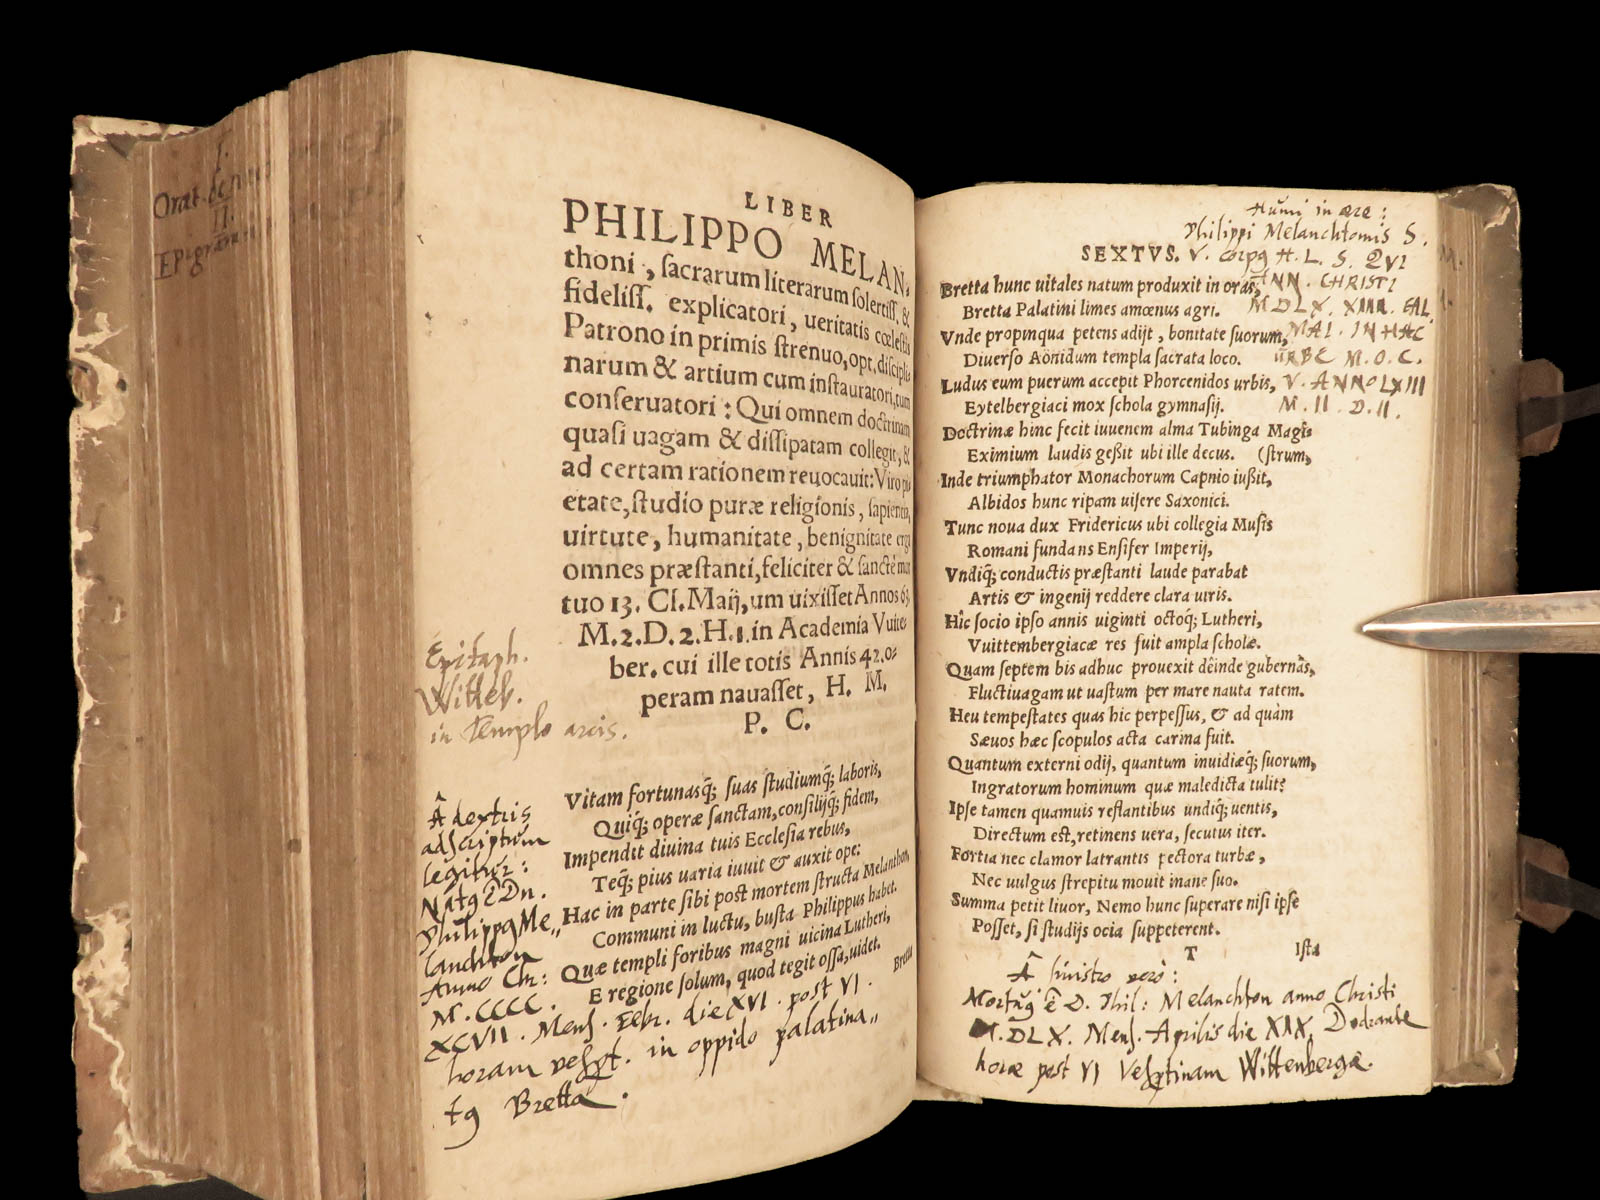 I.
Orat.
II.
Epigram
LIBER
PHILIPPO MELAN-
thoni, ſacrarum literarum ſolertiſſ. &
fideliſſ. explicatori, ueritatis cœleſtis
Patrono in primis ſtrenuo, opt. diſcipli-
narum & artium cum inſtauratori, tum
conſeruatori: Qui omnem doctrinam
quaſi uagam & diſſipatam collegit, &
ad certam rationem reuocauit: Viro pi-
etate, ſtudio puræ religionis, ſapientia,
uirtute, humanitate, benignitate erga
omnes præſtanti, feliciter & ſanctè mor
tuo 13. Cſ. Maij, um uixiſſet Annos 63
M. 2. D. 2. H. 1. in Academia Vuite-
ber. cui ille totis Annis 42. o-
peram nauaſſet, H. M.
P. C.
Epitaph.
Witteb.
in Templo arcis.
Vitam fortunasq́; suas ſtudiumq́; laboris,
Quiq́; operæ ſanctam, conſilijq́; fidem,
Impendit diuina tuis Eccleſia rebus,
Teq́; pius uaria iuuit & auxit ope:
Hac in parte ſibi poſt mortem ſtructa Melanthon,
Communi in luctu, buſta Philippus habet.
Quæ templi foribus magni uicina Lutheri,
E regione ſolum, quod tegit oſſa, uidet.
Bretta
Â dextris
adscriptum
legitur:
Natꝰ ē Dn.
PhilippꝰMe„
lanchton
Anno Chr:
M. CCCC.
XCVII. Menſ. Febr. die XVI. post VI.
horam veſꝑt. in oppido palatina„
tꝰ Bretta.
Humi in ære:
Philippi Melanchtomis S.
SEXTVS. V. corpꝰ H. L. S. QVI
Bretta hunc uitales natum produxit in oras, ANN. CHRISTI
Bretta Palatini limes amœnus agri. MDLX. XIII. CAL.
Vnde propinqua petens adijt, bonitate ſuorum, MAI. IN HAC
Diuerſo Aönidum templa ſacrata loco. URBE M. O. C.
Ludus eum puerum accepit Phorcenidos urbis, V. ANNO LXIII
Eytelbergiaci mox ſchola gymnaſij. M. II. D. II.
Doctrinæ hinc fecit iuuenem alma Tubinga Magi-
Eximium laudis geßit ubi ille decus. (ſtrum,
Inde triumphator Monachorum Capnio iußit,
Albidos hunc ripam uiſere Saxonici.
Tunc noua dux Fridericus ubi collegia Muſis
Romani fundans Enſifer Imperij,
Vndiq́; conductis præſtanti laude parabat
Artis & ingenij reddere clara uiris.
Hîc ſocio ipſo annis uiginti octoq́; Lutheri,
Vuittembergiacæ res fuit ampla ſcholæ.
Quam ſeptem bis adhuc prouexit deinde gubernãs,
Fluctiuagam ut uaſtum per mare nauta ratem.
Heu tempeſtates quas hic perpeſſus, & ad quàm
Sæuos hæc ſcopulos acta carina fuit.
Quantum externi odij, quantum inuidiæq́; ſuorum,
Ingratorum hominum quæ maledicta tulit?
Ipſe tamen quamuis reflantibus undiq́; uentis,
Directum eſt, retinens uera, ſecutus iter.
Fortia nec clamor latrantis pectora turbæ,
Nec uulgus ſtrepitu mouit inane ſuo.
Summa petit liuor, Nemo hunc ſuperare niſi ipſe
Poſſet, ſi ſtudijs ocia ſuppeterent.
T
Iſta
Â sinistro vero:
Mortuꝰ ē D. Phil: Melanchton anno Christi
M.DLX. Menſ. Aprilis die XIX, Dodrante
horæ post VI Veſꝑtinam Wittenbergæ.